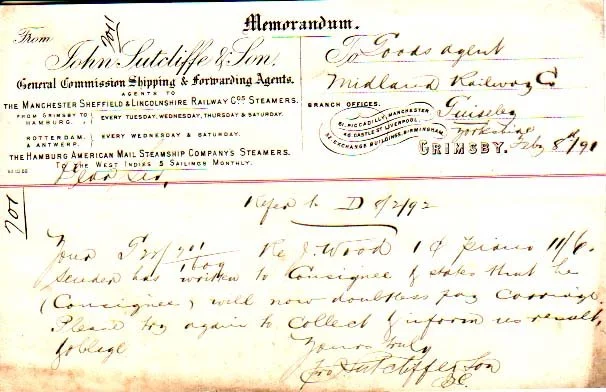 Memorandum.
From
701
John Sutcliffe & Son.
General Commission Shipping & Forwarding Agents.
AGENTS TO
THE MANCHESTER SHEFFIELD & LINCOLNSHIRE RAILWAY COS STEAMERS.
FROM GRIMSBY TO HAMBURG. EVERY TUESDAY, WEDNESDAY, THURSDAY & SATURDAY.
ROTTERDAM. & ANTWERP. EVERY WEDNESDAY & SATURDAY.
THE HAMBURG AMERICAN MAIL STEAMSHIP COMPANY'S STEAMERS.
TO THE WEST INDIES 5 SAILINGS MONTHLY.
To Goods Agent
Midland Railway Co
BRANCH OFFICES.
61, PICCADILLY, MANCHESTER
46 CASTLE ST LIVERPOOL.
EXCHANGE BUILDINGS, BIRMINGHAM.
Guiseley
Yorkshire
GRIMSBY. Feby 8th / 91
Dear Sir,
701
Refer to D 8/2/92
Your Re J. Wood 1 Piano 11/6.
Sender has written to Consignee & states that he
(Consignee) will now doubtless pay carriage.
Please try again to collect & inform us result,
& oblige
Yours truly
Jno Sutcliffe & Son